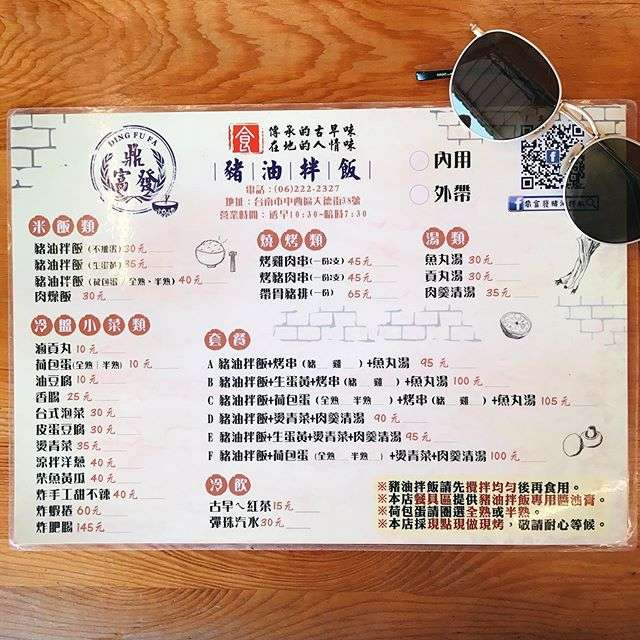 DING FU FA
鼎
富 發
食 傳承的古早味
在地的人情味
豬油拌飯
電話：(06)222-2327
地址：台南市中西區天德街38號
營業時間：透早10:30~暗時7:30
內用
外帶
鼎富發豬油拌飯
米飯類
豬油拌飯 (不攦蛋) 30元
豬油拌飯 (生蛋黃) 35元
豬油拌飯 (荷包蛋/全熟、半熟) 40元
肉燥飯 30元
燒烤類
烤雞肉串(一份2支) 45元
烤豬肉串(一份2支) 45元
帶骨豬排(一份) 65元
湯類
魚丸湯 30元
貢丸湯 30元
肉羹清湯 35元
冷盤小菜類
滷貢丸 10元
荷包蛋(全熟/半熟) 10元
油豆腐 10元
香腸 25元
台式泡菜 30元
皮蛋豆腐 30元
燙青菜 35元
涼拌洋蔥 40元
柴魚黃瓜 40元
炸手工甜不辣 40元
炸蝦捲 60元
炸肥腸 145元
套餐
A 豬油拌飯+烤串(豬 雞 )+魚丸湯 95元
B 豬油拌飯+生蛋黃+烤串(豬 雞 )+魚丸湯 100元
C 豬油拌飯+荷包蛋(全熟 半熟 )+烤串(豬 雞 )+魚丸湯 105元
D 豬油拌飯+燙青菜+肉羹清湯 90元
E 豬油拌飯+生蛋黃+燙青菜+肉羹清湯 95元
F 豬油拌飯+荷包蛋 (全熟 半熟 )+燙青菜+肉羹清湯 100元
冷飲
古早ㄟ紅茶 15元
彈珠汽水 30元
※豬油拌飯請先攪拌均勻後再食用。
※本店餐具區提供豬油拌飯專用醬油膏。
※荷包蛋請圈選全熟或半熟。
※本店採現點現做現烤，敬請耐心等候。